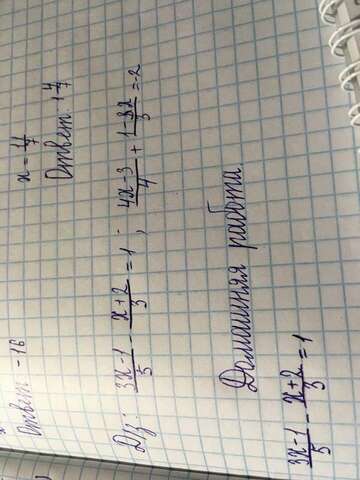 Ответ -16
x = 11/7
Ответ: 1 4/7
Дз: (3x-1)/5 - (x+2)/3 = 1; (4x-3)/4 + (1-8x)/3 = -2
Домашняя работа.
(3x-1)/5 - (x+2)/3 = 1